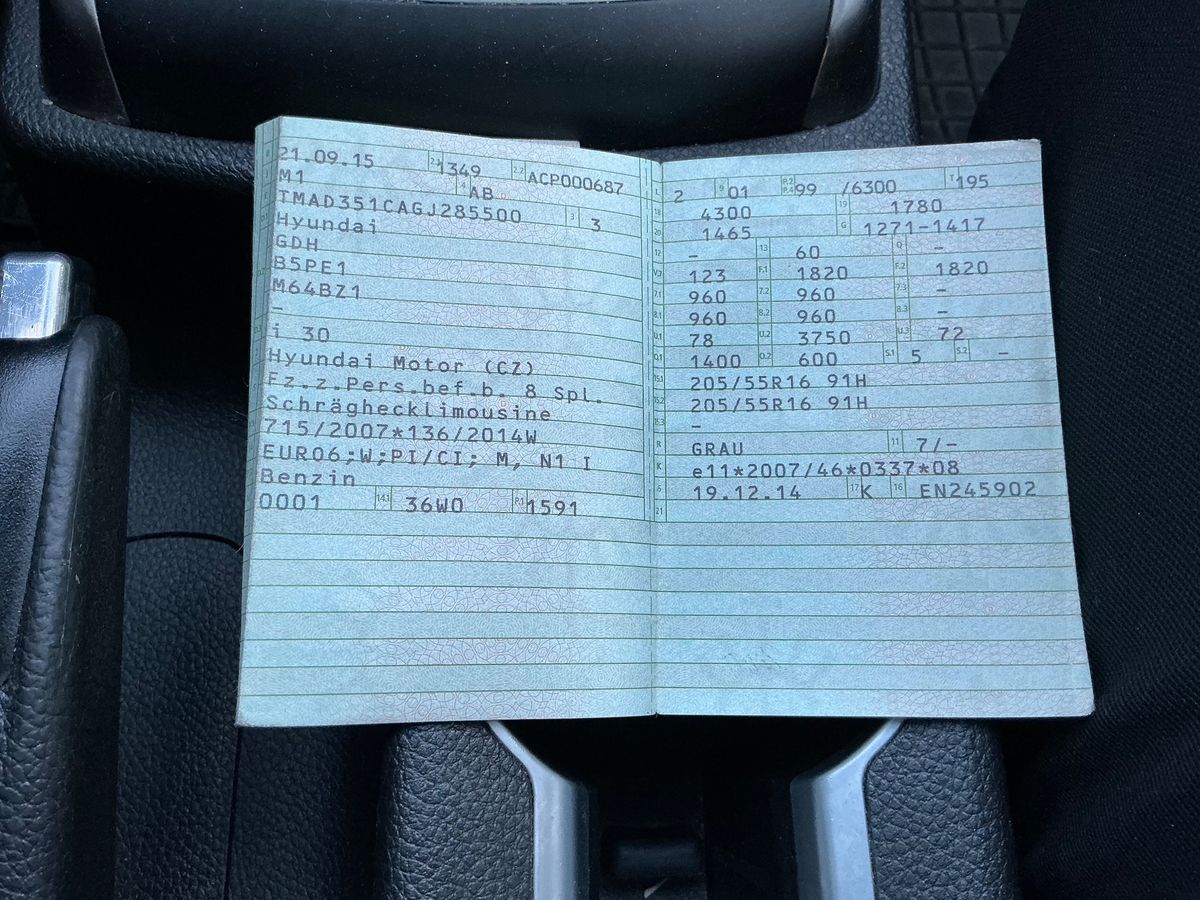 21.09.15 2.1 1349 2.2 ACP000687
M1 4 AB
TMAD351CAGJ285500 3 3
Hyundai
GDH
B5PE1
M64BZ1
-
i 30
Hyundai Motor (CZ)
Fz.z.Pers.bef.b. 8 Spl.
Schräghecklimousine
715/2007*136/2014W
EURO6;W;PI/CI; M, N1 I
Benzin
0001 14.1 36W0 P.1 1591
L 2 9 01 P.2 P.4 99 /6300 T 195
18 4300 19 1780
20 1465 G 1271-1417
12 - 13 60 Q -
V.7 123 F.1 1820 F.2 1820
7.1 960 7.2 960 7.3 -
8.1 960 8.2 960 8.3 -
U.1 78 U.2 3750 U.3 72
O.1 1400 O.2 600 S.1 5 S.2 -
15.1 205/55R16 91H
15.2 205/55R16 91H
15.3 -
R GRAU 11 7/-
K e11*2007/46*0337*08
6 19.12.14 17 K 16 EN245902
21